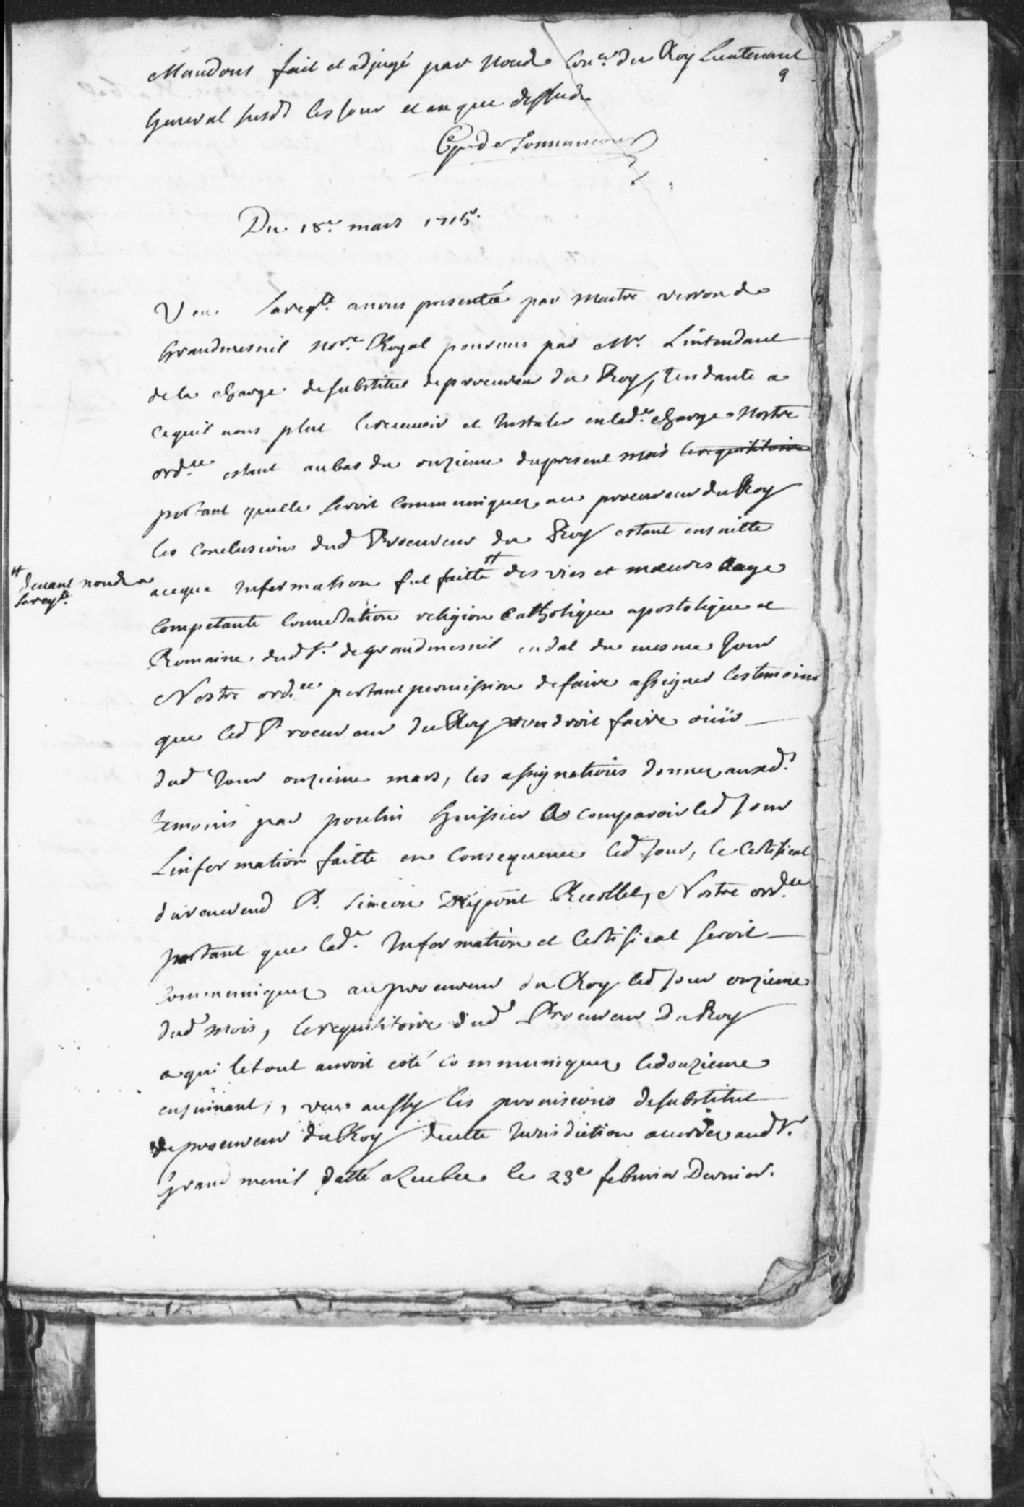 Mandons fait et adjugé par Nous Con.er du Roy Lieutenant
9
General susd. les jour et an que dessus
Du 18.e mars 1715.
Veu la req.te a nous presenteé par maitre veron de
Grandmesnil no.re Royal pourveu par M.r L'intendant
de la charge de substitut de procureur du Roy, tendante a
ce quil nous plut le recevoir et Instaler en lad.e charge Nostre
ord.ce estant au bas du onzieme du present mois le requisitoire
portant quelle seroit Communiquez au procureur du Roy
les conclusions dud Procureur du Roy estant ensuitte
a ce que Information fut faitte # des vies et moeurs aage
# devant nous a
la req.te
Competante religion Catholique apostolique et
Romaine dud S.r de grandmesnil en dat du mesme Jour
Nostre ord.ce portant permission de faire assigner les temoins
que led Procureur du Roy voudroit faire ouïr
dud Jour onzieme mars, les assignations donnez auxd.
temoins par poulin huissier a comparoir led Jour
Linformation faitte en Consequence led Jour, le Certificat
du reverend P. Simeon Dupont Recollet, Nostre ord.ce
portant que lad.e Information et Certificat seroit
Communiquez au procureur du Roy led Jour onzieme
dud mois, le requisitoire dud Procureur du Roy
a qui le tout auroit esté Communiquez le douzieme
ensuivant, veu aussy les provisions de substitut
de procureur du Roy de cette Jurisdiction accordez aud S.r
Grand menil datté a Quebec le 23e febvrier Dernier.